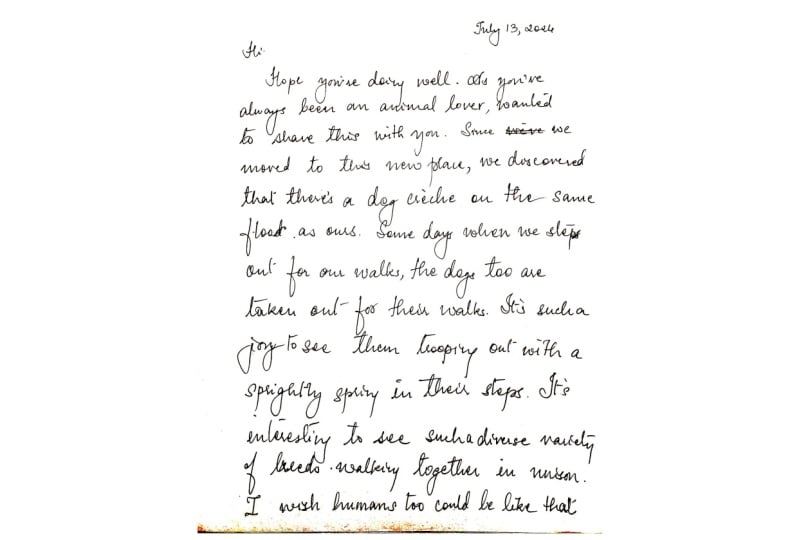 July 13, 2024
Hi
Hope you're doing well. As you've
always been an animal lover, wanted
to share this with you. Since we've we
moved to this new place, we discovered
that there's a dog crèche on the same
floor as ours. Some days when we step
out for our walks, the dogs too are
taken out for their walks. It's such a
joy to see them trooping out with a
sprightly spring in their steps. It's
interesting to see such a diverse variety
of breeds walking together in unison.
I wish humans too could be like that